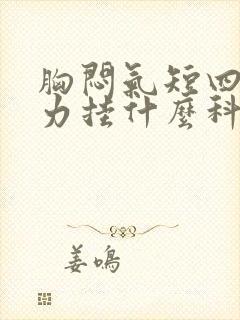 胸悶氣短四
力挂什麼科
姜鳴